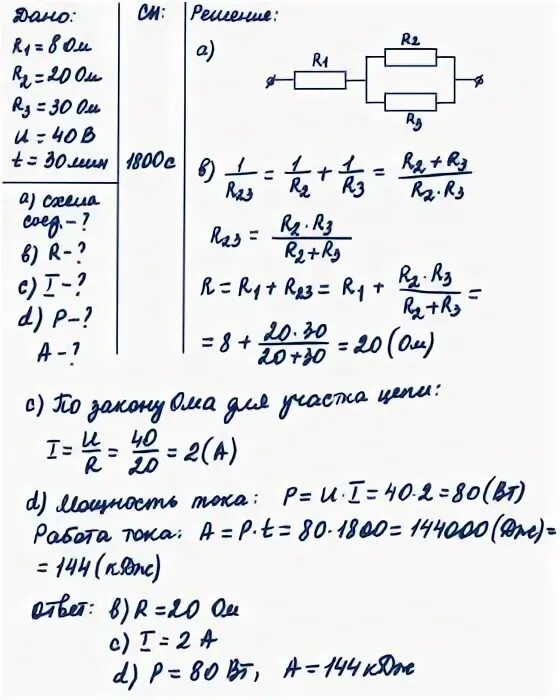 Дано:
R1 = 8 Ом
R2 = 20 Ом
R3 = 30 Ом
U = 40 В
t = 30 мин
а) схема
соед. - ?
в) R - ?
c) I - ?
d) P - ?
A - ?
СИ:
1800 с
Решение:
а)
R1
R2
R3
в) 1/R23 = 1/R2 + 1/R3 = (R2 + R3)/(R2 · R3)
R23 = (R2 · R3)/(R2 + R3)
R = R1 + R23 = R1 + (R2 · R3)/(R2 + R3) =
= 8 + (20 · 30)/(20 + 30) = 20 (Ом)
c) По закону Ома для участка цепи:
I = U/R = 40/20 = 2 (А)
d) Мощность тока: P = U · I = 40 · 2 = 80 (Вт)
Работа тока: A = P · t = 80 · 1800 = 144000 (Дж) =
= 144 (кДж)
Ответ: в) R = 20 Ом
c) I = 2 А
d) P = 80 Вт, A = 144 кДж